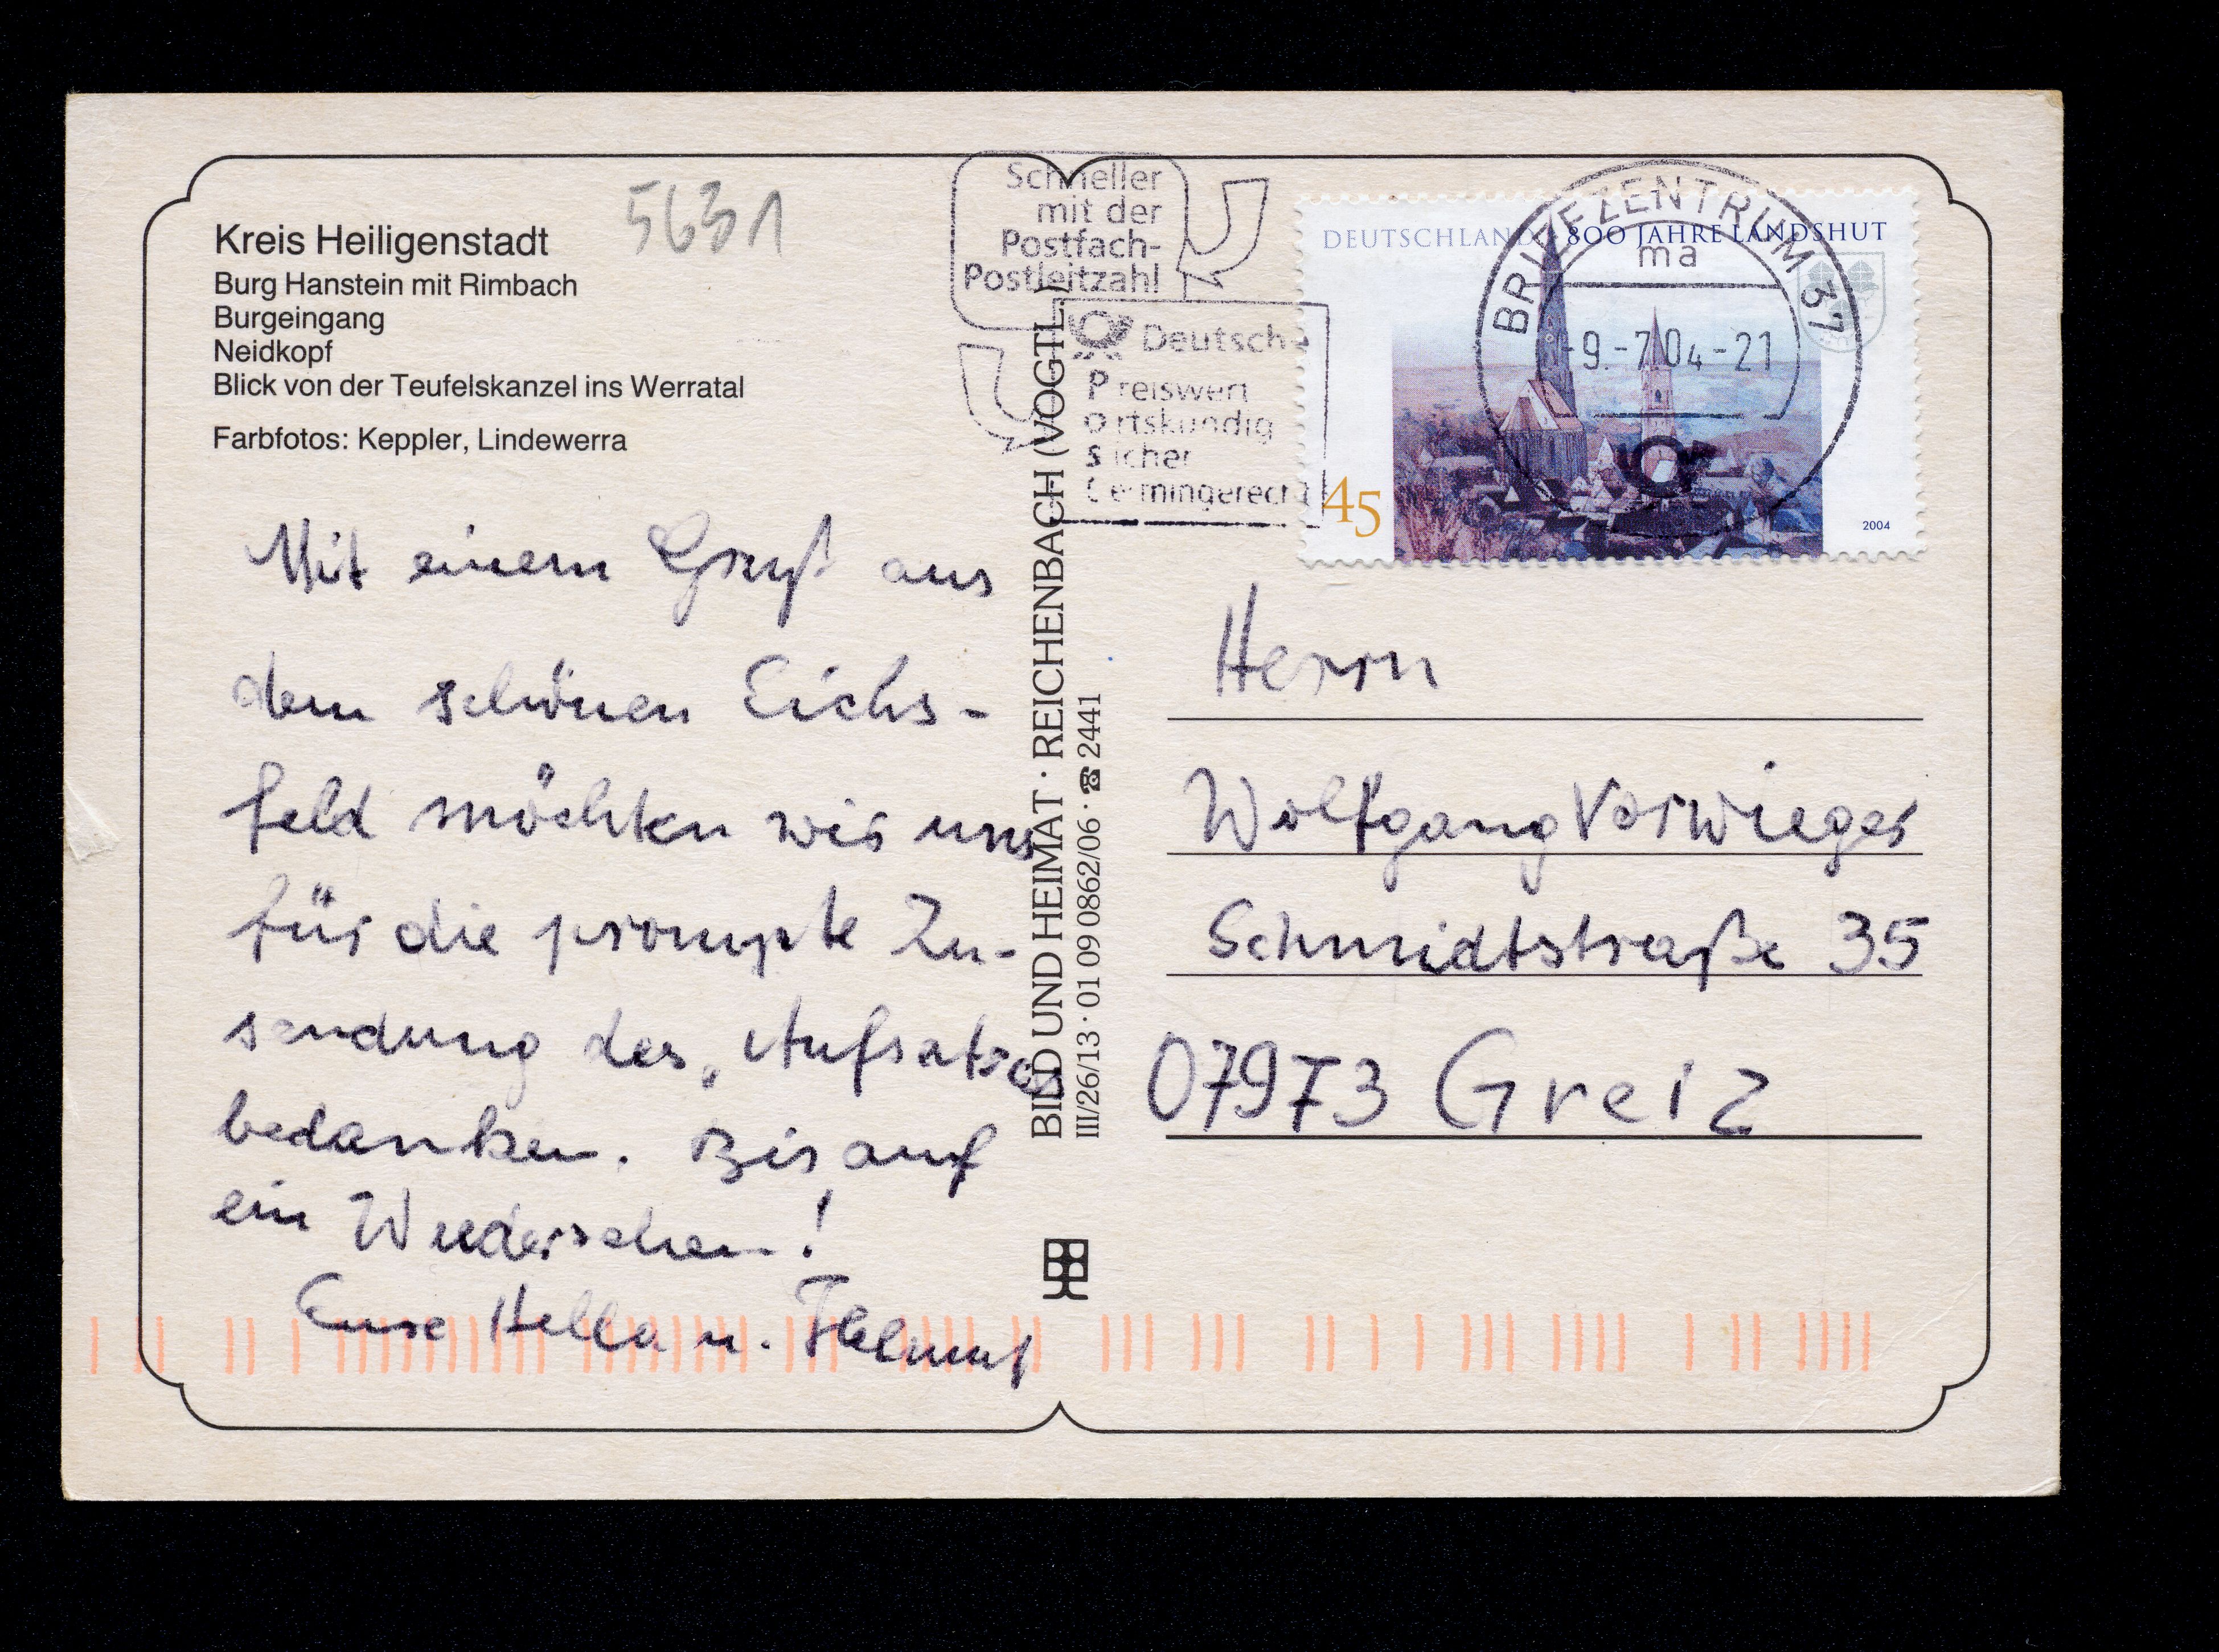 Kreis Heiligenstadt
5631
Burg Hanstein mit Rimbach
Burgeingang
Neidkopf
Blick von der Teufelskanzel ins Werratal
Farbfotos: Keppler, Lindewerra
Mit einem Gruß aus
dem schönen Eichs-
feld möchten wir uns
für die prompte Zu-
sendung des Aufsatzes
bedanken. Bis auf
ein Wiedersehen!
Eure Hella u. Helmut
BILD UND HEIMAT · REICHENBACH (VOGTL.)
III/26/13 · 01 09 0862/06 · ☎ 2441
Schneller
mit der
Postfach-
Postleitzahl
Deutsche
Preiswert
Ortskundig
Sicher
termingerecht
DEUTSCHLAND 800 JAHRE LANDSHUT
45
2004
BRIEFZENTRUM 37
ma
-9.-7.04-21
Herrn
Wolfgang Vorwieger
Schmidtstraße 35
07973 Greiz